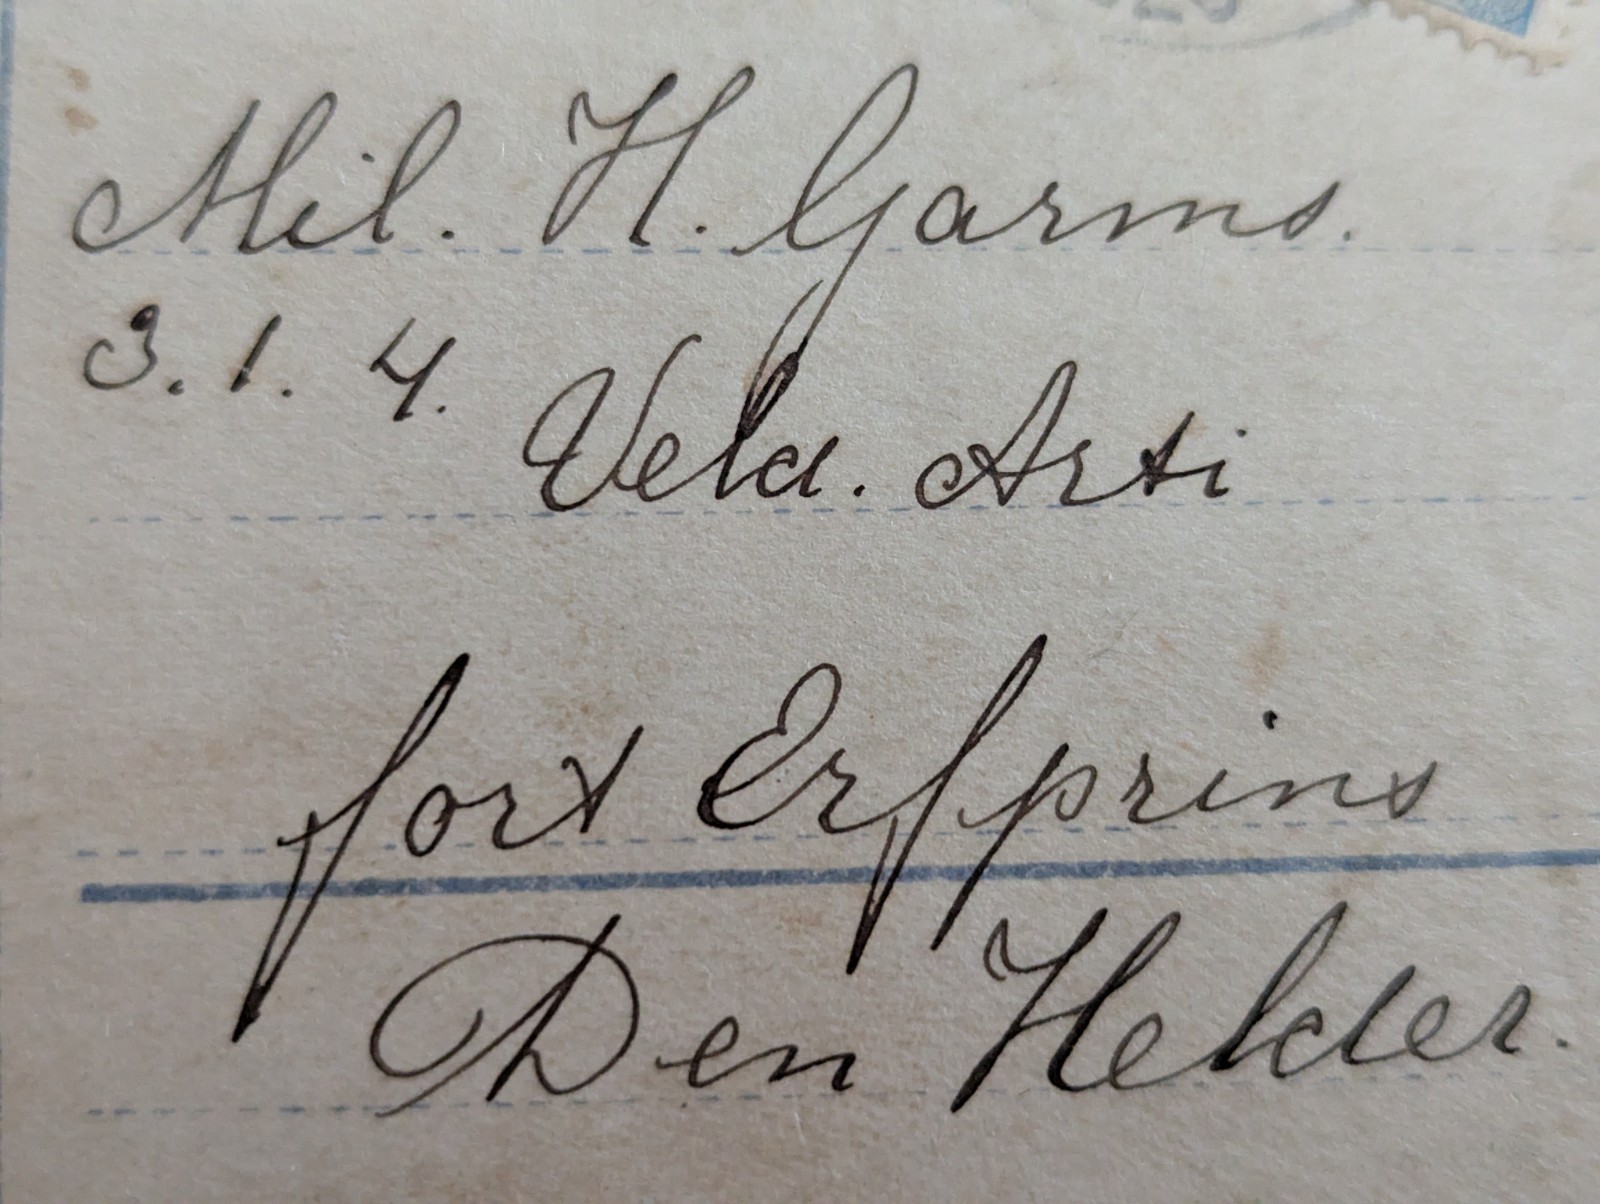 Mil. H. Garms.
3. 1. 4.
Veld. Arti
fort Erfprins
Den Helder.